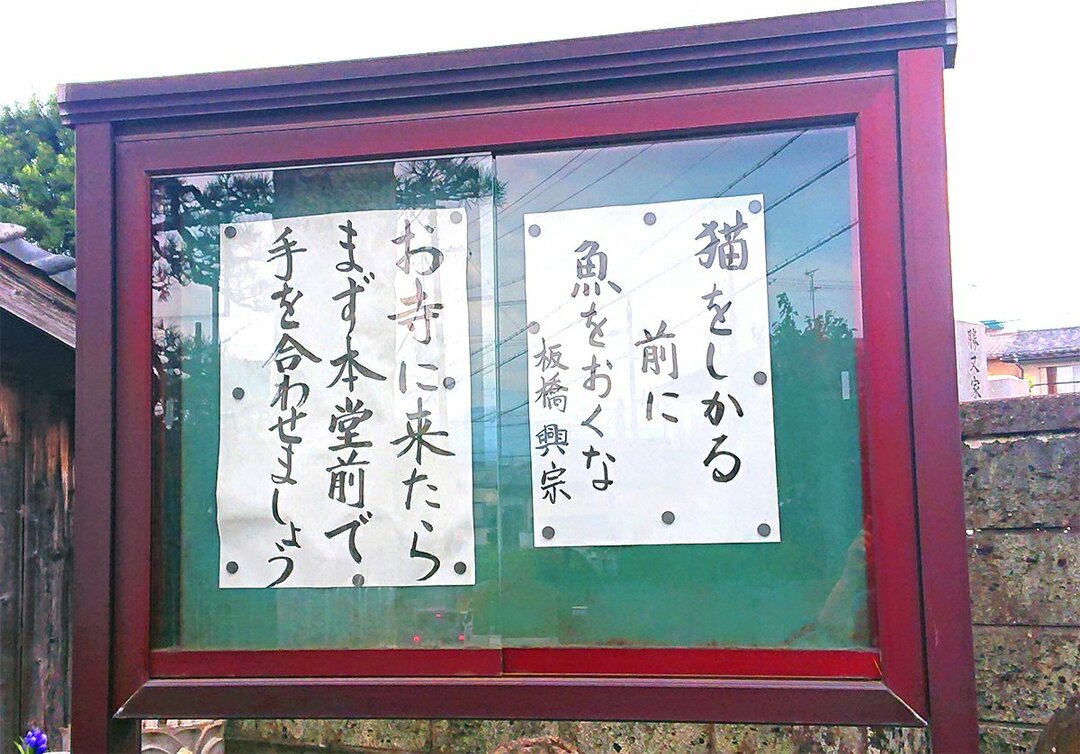 猫をしかる
前に
魚をおくな
板橋興宗
お寺に来たら
まず本堂前で
手を合わせましょう
勝又家